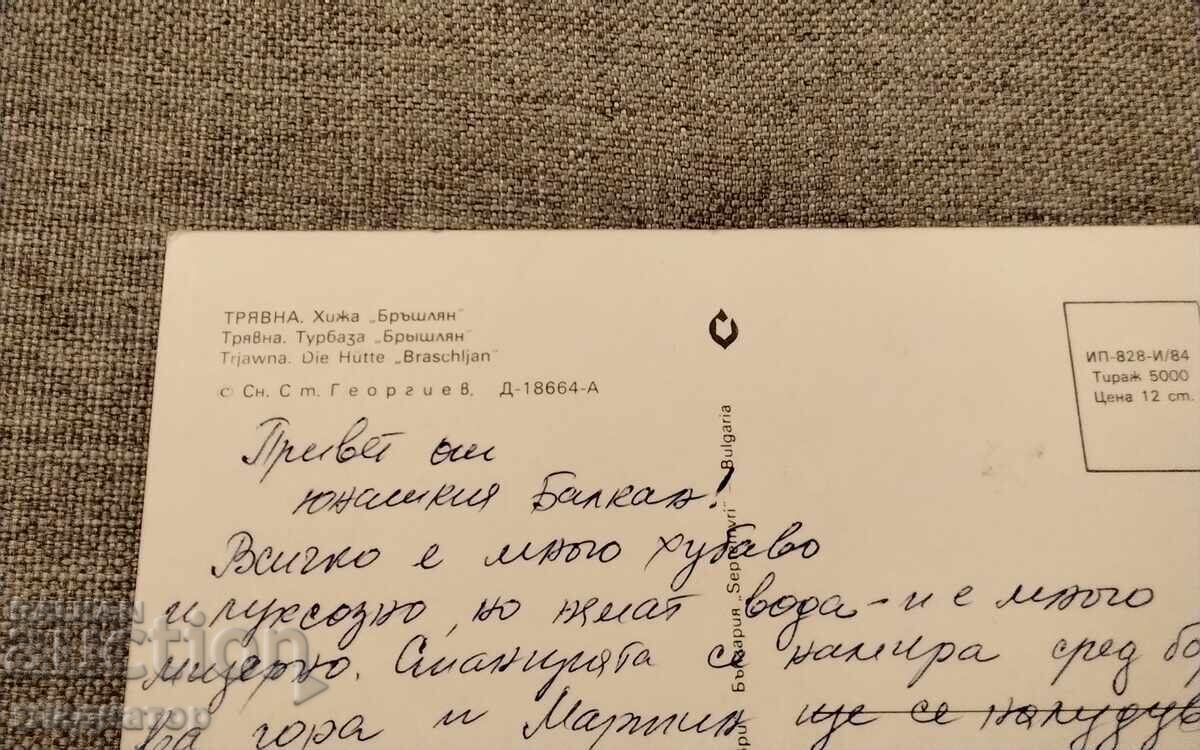 ТРЯВНА. Хижа „Бръшлян"
Трявна. Турбаза „Брышлян"
Trjawna. Die Hütte „Braschljan"
© Сн. Ст. Георгиев, Д-18664-А
ИП-828-И/84
Тираж 5000
Цена 12 ст.
България „Septemvri" - Bulgaria
Привет от
юнашкия Балкан!
Всичко е много хубаво
и луксозно, но нямат вода - и е много
мизерно. Станцията се намира сред бор
ва гора и Мартин ще се налудува
auction